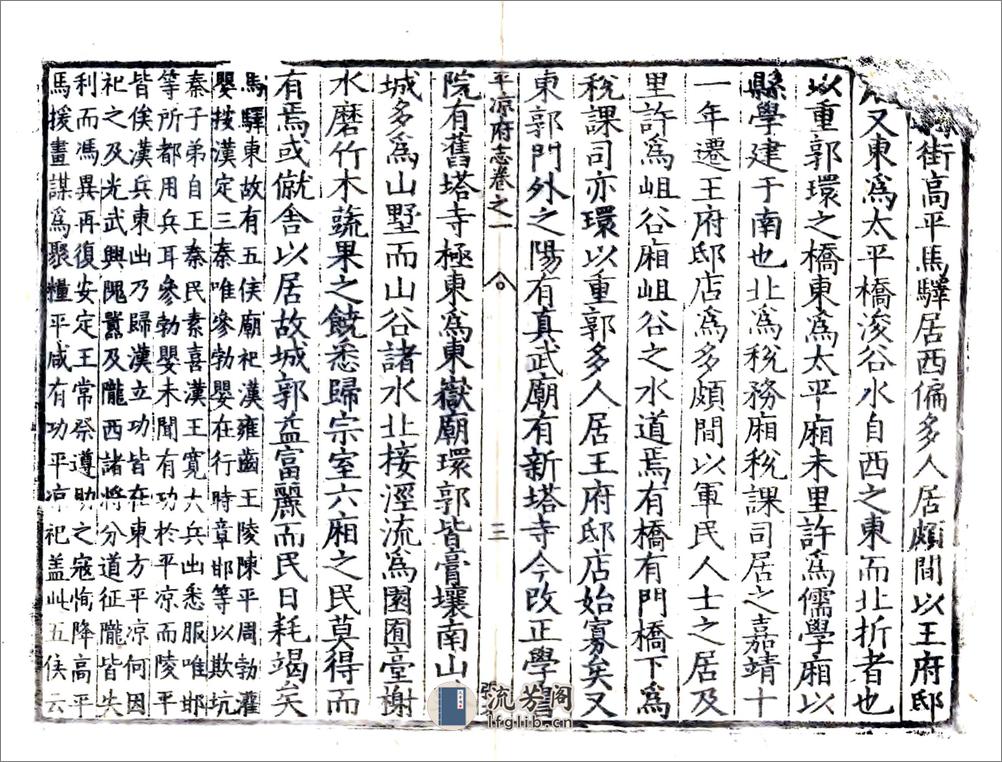 街高平馬驛居西偏多人居頗間以王府邸
又東爲太平橋浚谷水自西之東而北折者也
以重郭環之橋東爲太平廂未里許爲儒學廂以
縣學建于南也北爲稅務廂稅課司居之嘉靖十
一年遷王府邸店爲多頗間以軍民人士之居及
里許爲岨谷廂岨谷之水道焉有橋有門橋下爲
稅課司亦環以重郭多人居王府邸店始寡矣又
東郭門外之陽有真武廟有新塔寺今改正學書
平凉府志卷之一 三
院有舊塔寺極東爲東嶽廟環郭皆膏壤南山
城多爲山墅而山谷諸水北接涇流爲園囿臺榭
水磨竹木蔬果之饒悉歸宗室六廂之民莫得而
有焉或僦舍以居故城郭益富麗而民日耗竭矣
馬驛東故有五侯廟祀漢雍齒王陵陳平周勃灌
嬰按漢定三秦唯參勃嬰在行時章邯等以欺坑
秦子弟自王秦民素喜漢王寬大兵出悉服唯邯
等所都用兵耳參勃嬰未聞有功於平凉而陵平
皆侯漢兵東出乃歸漢立功皆在東方平凉何因
祀之及光武興隗囂及隴西諸將分道征隴皆失
利而馮異再復安定王常祭遵助之寇恂降高平
馬援畫謀爲聚糧平咸有功平凉祀盖此五侯云
流芳阁
lfglib.com